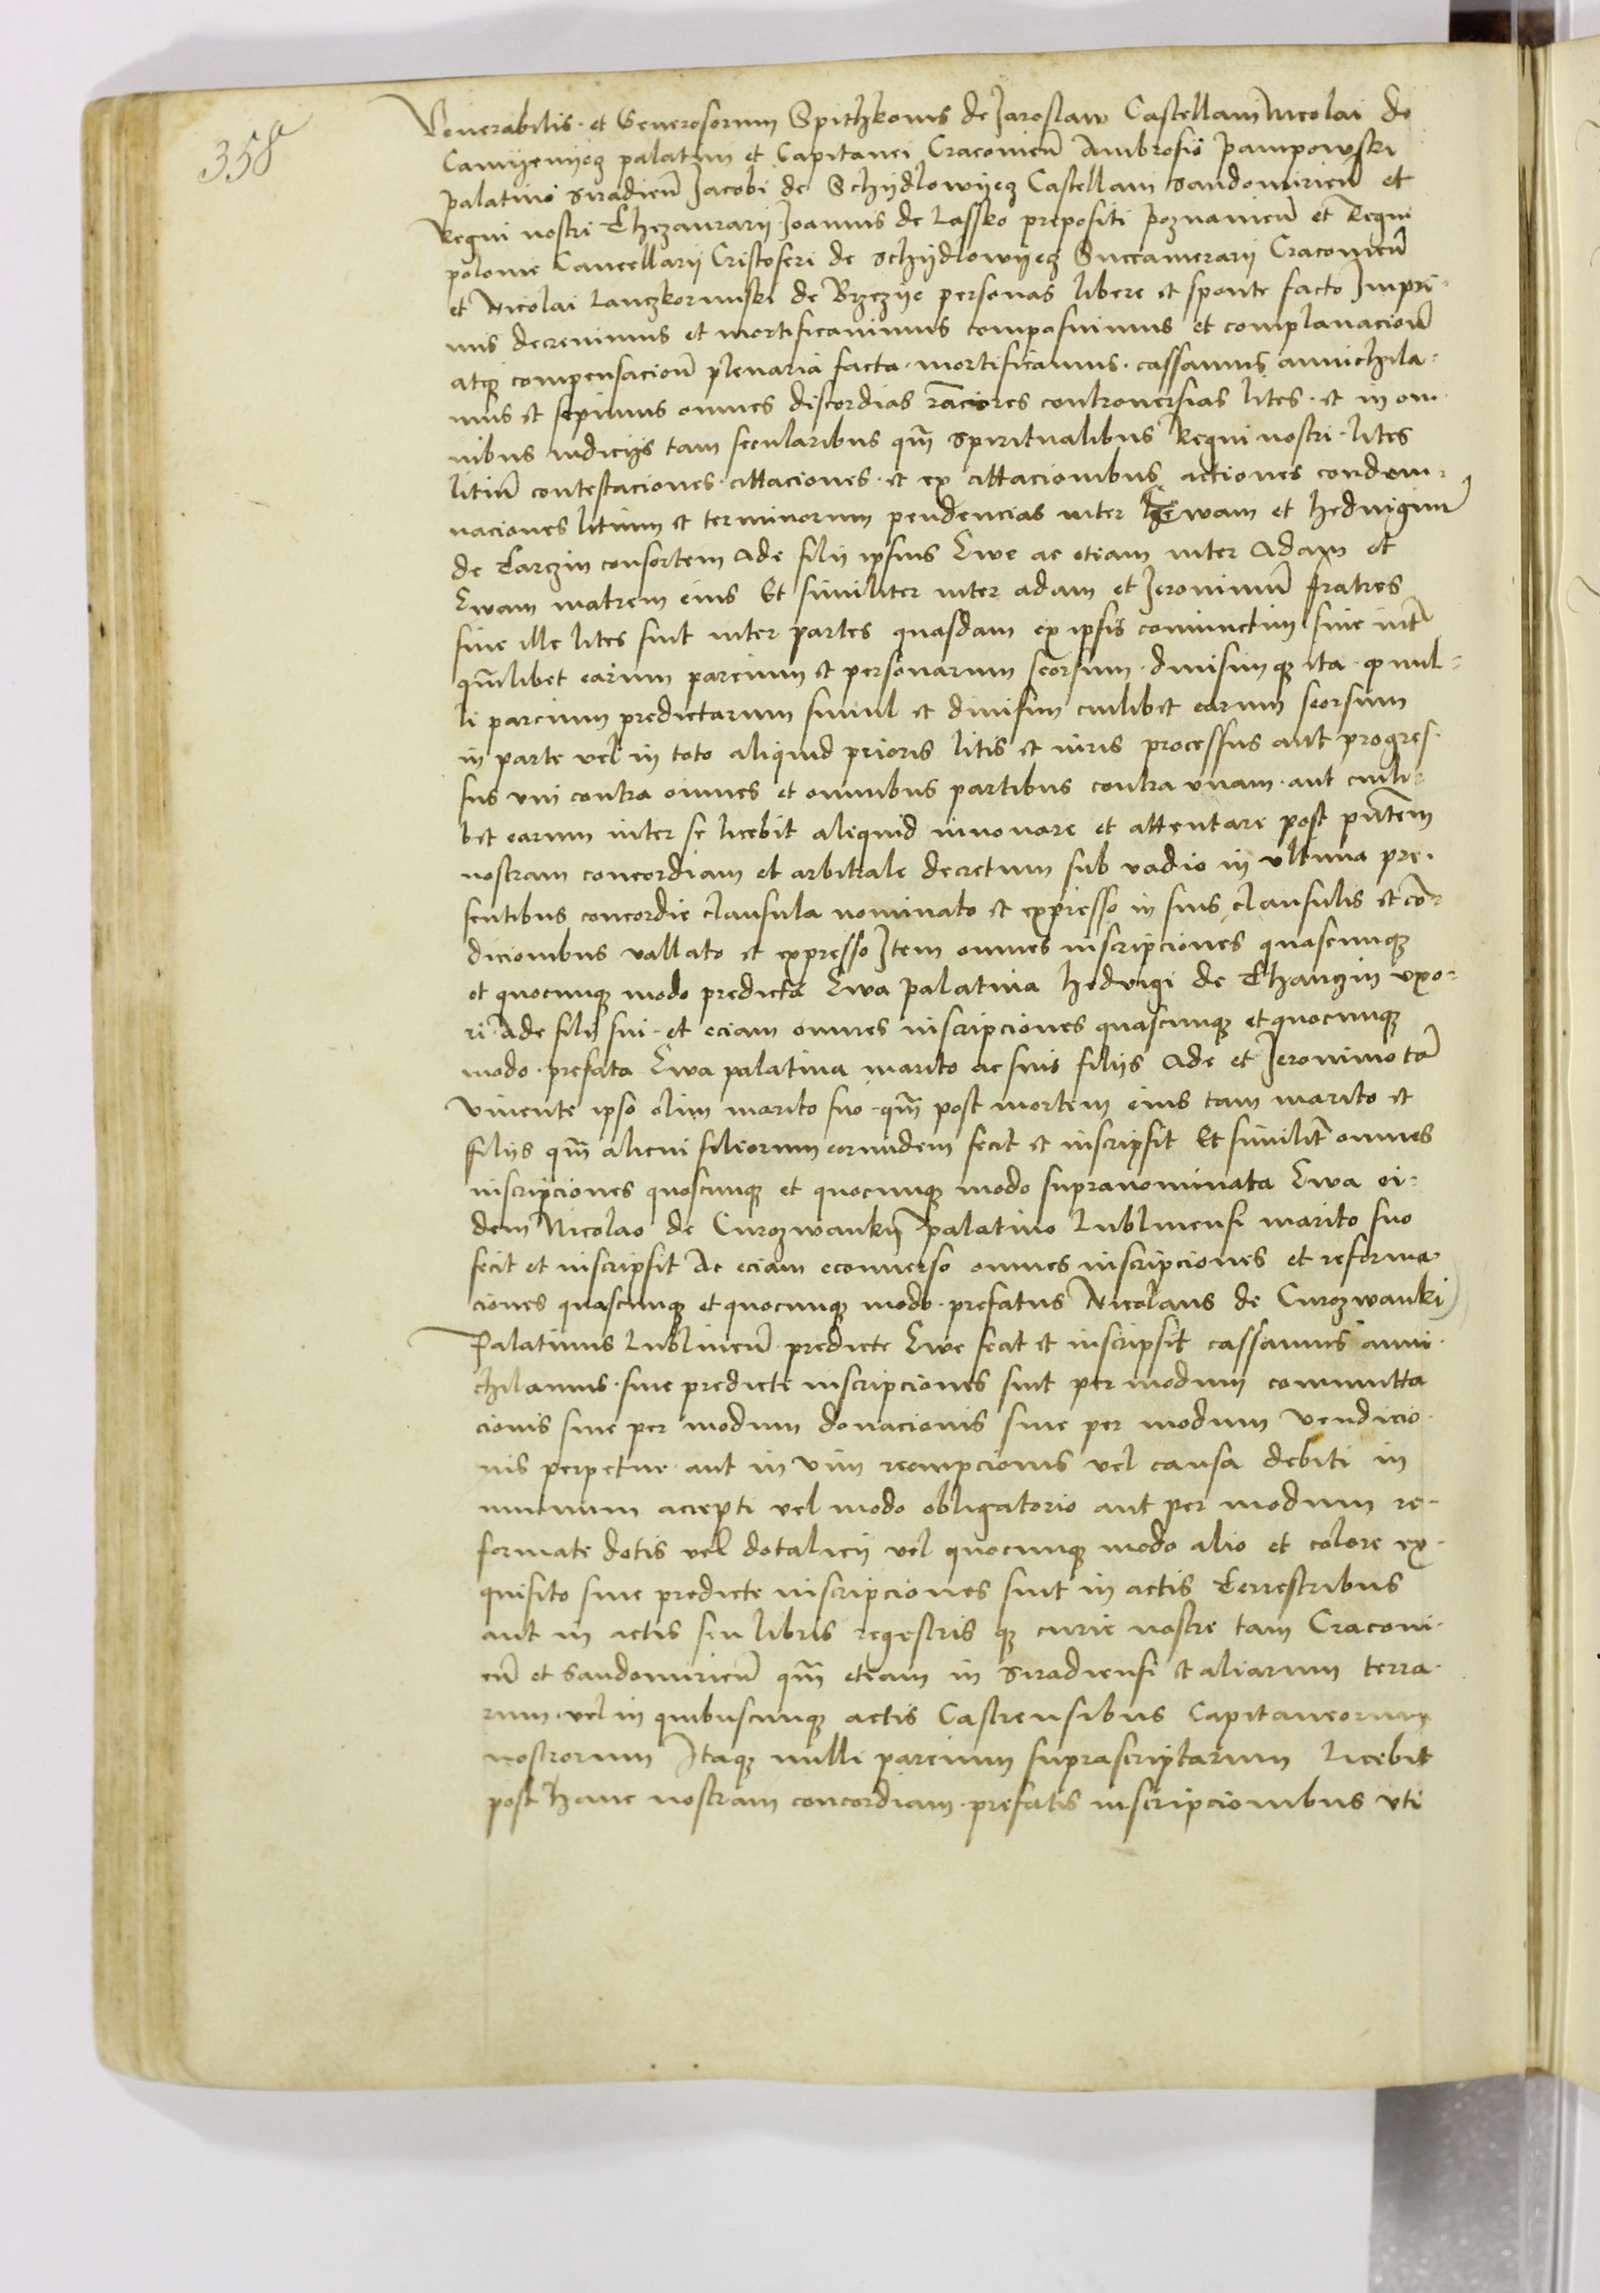 358
Venerabilis · et Generosorum Spithkonis de Jaroslaw Castellani Nicolai de
Camyenyecz palatini et Capitanei Cracovien̄ Ambrosio Pampowski
palatino Siradien̄ Jacobi de Schydlowyecz Castellani Sandomirien̄ et
Regni nostri Thezaurarij Joannis de Lassko prepositi Poznanien̄ et Regni
polonie Cancellarij Cristoferi de Schydlowyecz Succamerarij Cracovien̄
et Nicolai Lanczkorunski de Brzezye personas libere et sponte facto Inpri·
mis decrevimus et mortificavimus composuimus et complanacion̄
atq̨ compensacion̄ plenaria facta · mortificamus · cassamus annichila·
mus et sopimus omnes discordias controversias lites · et in om·
nibus iudicijs tam secularibus qm̄ spiritualibus Regni nostri · lites
litiū contestaciones · cittaciones · et ex cittacionibus actiones condem·
naciones litium et terminorum pendencias inter Ewam et hedvigim
de Tarczin consortem Ade filij ipsius Ewe ac etiam inter Adam et
Ewam matrem eius Et similiter inter adam et Jeronimū fratres
sive ille lites sint inter partes quasdam ex ipsis coniunctim sive int̄
qm̄libet earum parcium et personarum seorsum · divisimq̨ ita · q nul=
li parcium predictarum simul et divisim cuilibet earum seorsum
in parte vel in toto aliquid prioris litis et iuris processus aut progres·
sus uni contra omnes et omnibus partibus contra unam · aut cuili·
bet earum inter se licebit aliquid innovare et attentare post pn̄tem
nostram concordiam et arbitrale decretum sub vadio in ultima pre·
sentibus concordie clausula nominato et expresso in suis clausulis et cō·
dicionibus vallato et expresso Item omnes inscripciones quascunq̨
et quocunq̨ modo predicta Ewa palatina hedvigi de Thanczin uxo·
ri · Ade filij sui · et eciam omnes inscripciones quascunq̨ et quocunq̨
modo · prefata Ewa palatina marito ac suis filijs Ade et Jeronimo tā
vivente ipso olim marito suo · qm̄ post mortem eius tam marito et
filijs qm̄ alicui filiorum eorundem fecit et inscripsit Et similit̄ omnes
inscripciones quoscunq̨ et quocunq̨ modo supranominata Ewa ei·
dem Nicolao de Curozwanky Palatino Lublinensi marito suo
fecit et inscripsit Ac eciam econverso omnes inscripciones et reforma·
ciones quascunq̨ et quocunq̨ modo · prefatus Nicolaus de Curozwanki
Palatinus Lublinen̄ predicte Ewe fecit et inscripsit cassamus anni·
chilamus · sive predicte inscripciones sint per modum commutta
cionis sive per modum donacionis sive per modum vendicio·
nis perpetue · aut in vim reempcionis vel causa debiti in
mutuum accepti vel modo obligatorio aut per modum re·
formate dotis vel dotalicij vel quocunq̨ modo alio et colore ex·
quisito sive predicte inscripciones sint in actis Terrestribus
aut in actis seu libris regestris q̨ curie nostre tam Cracovi·
en̄ et Sandomirien̄ qm̄ etiam in Siradiensi et aliarum terra·
rum · vel in quibuscunq̨ actis Castrensibus Capitaneorum
nostrorum Itaq̨ nulli parcium suprascriptarum licebit
post hanc nostram concordiam · prefatis inscripcionibus uti